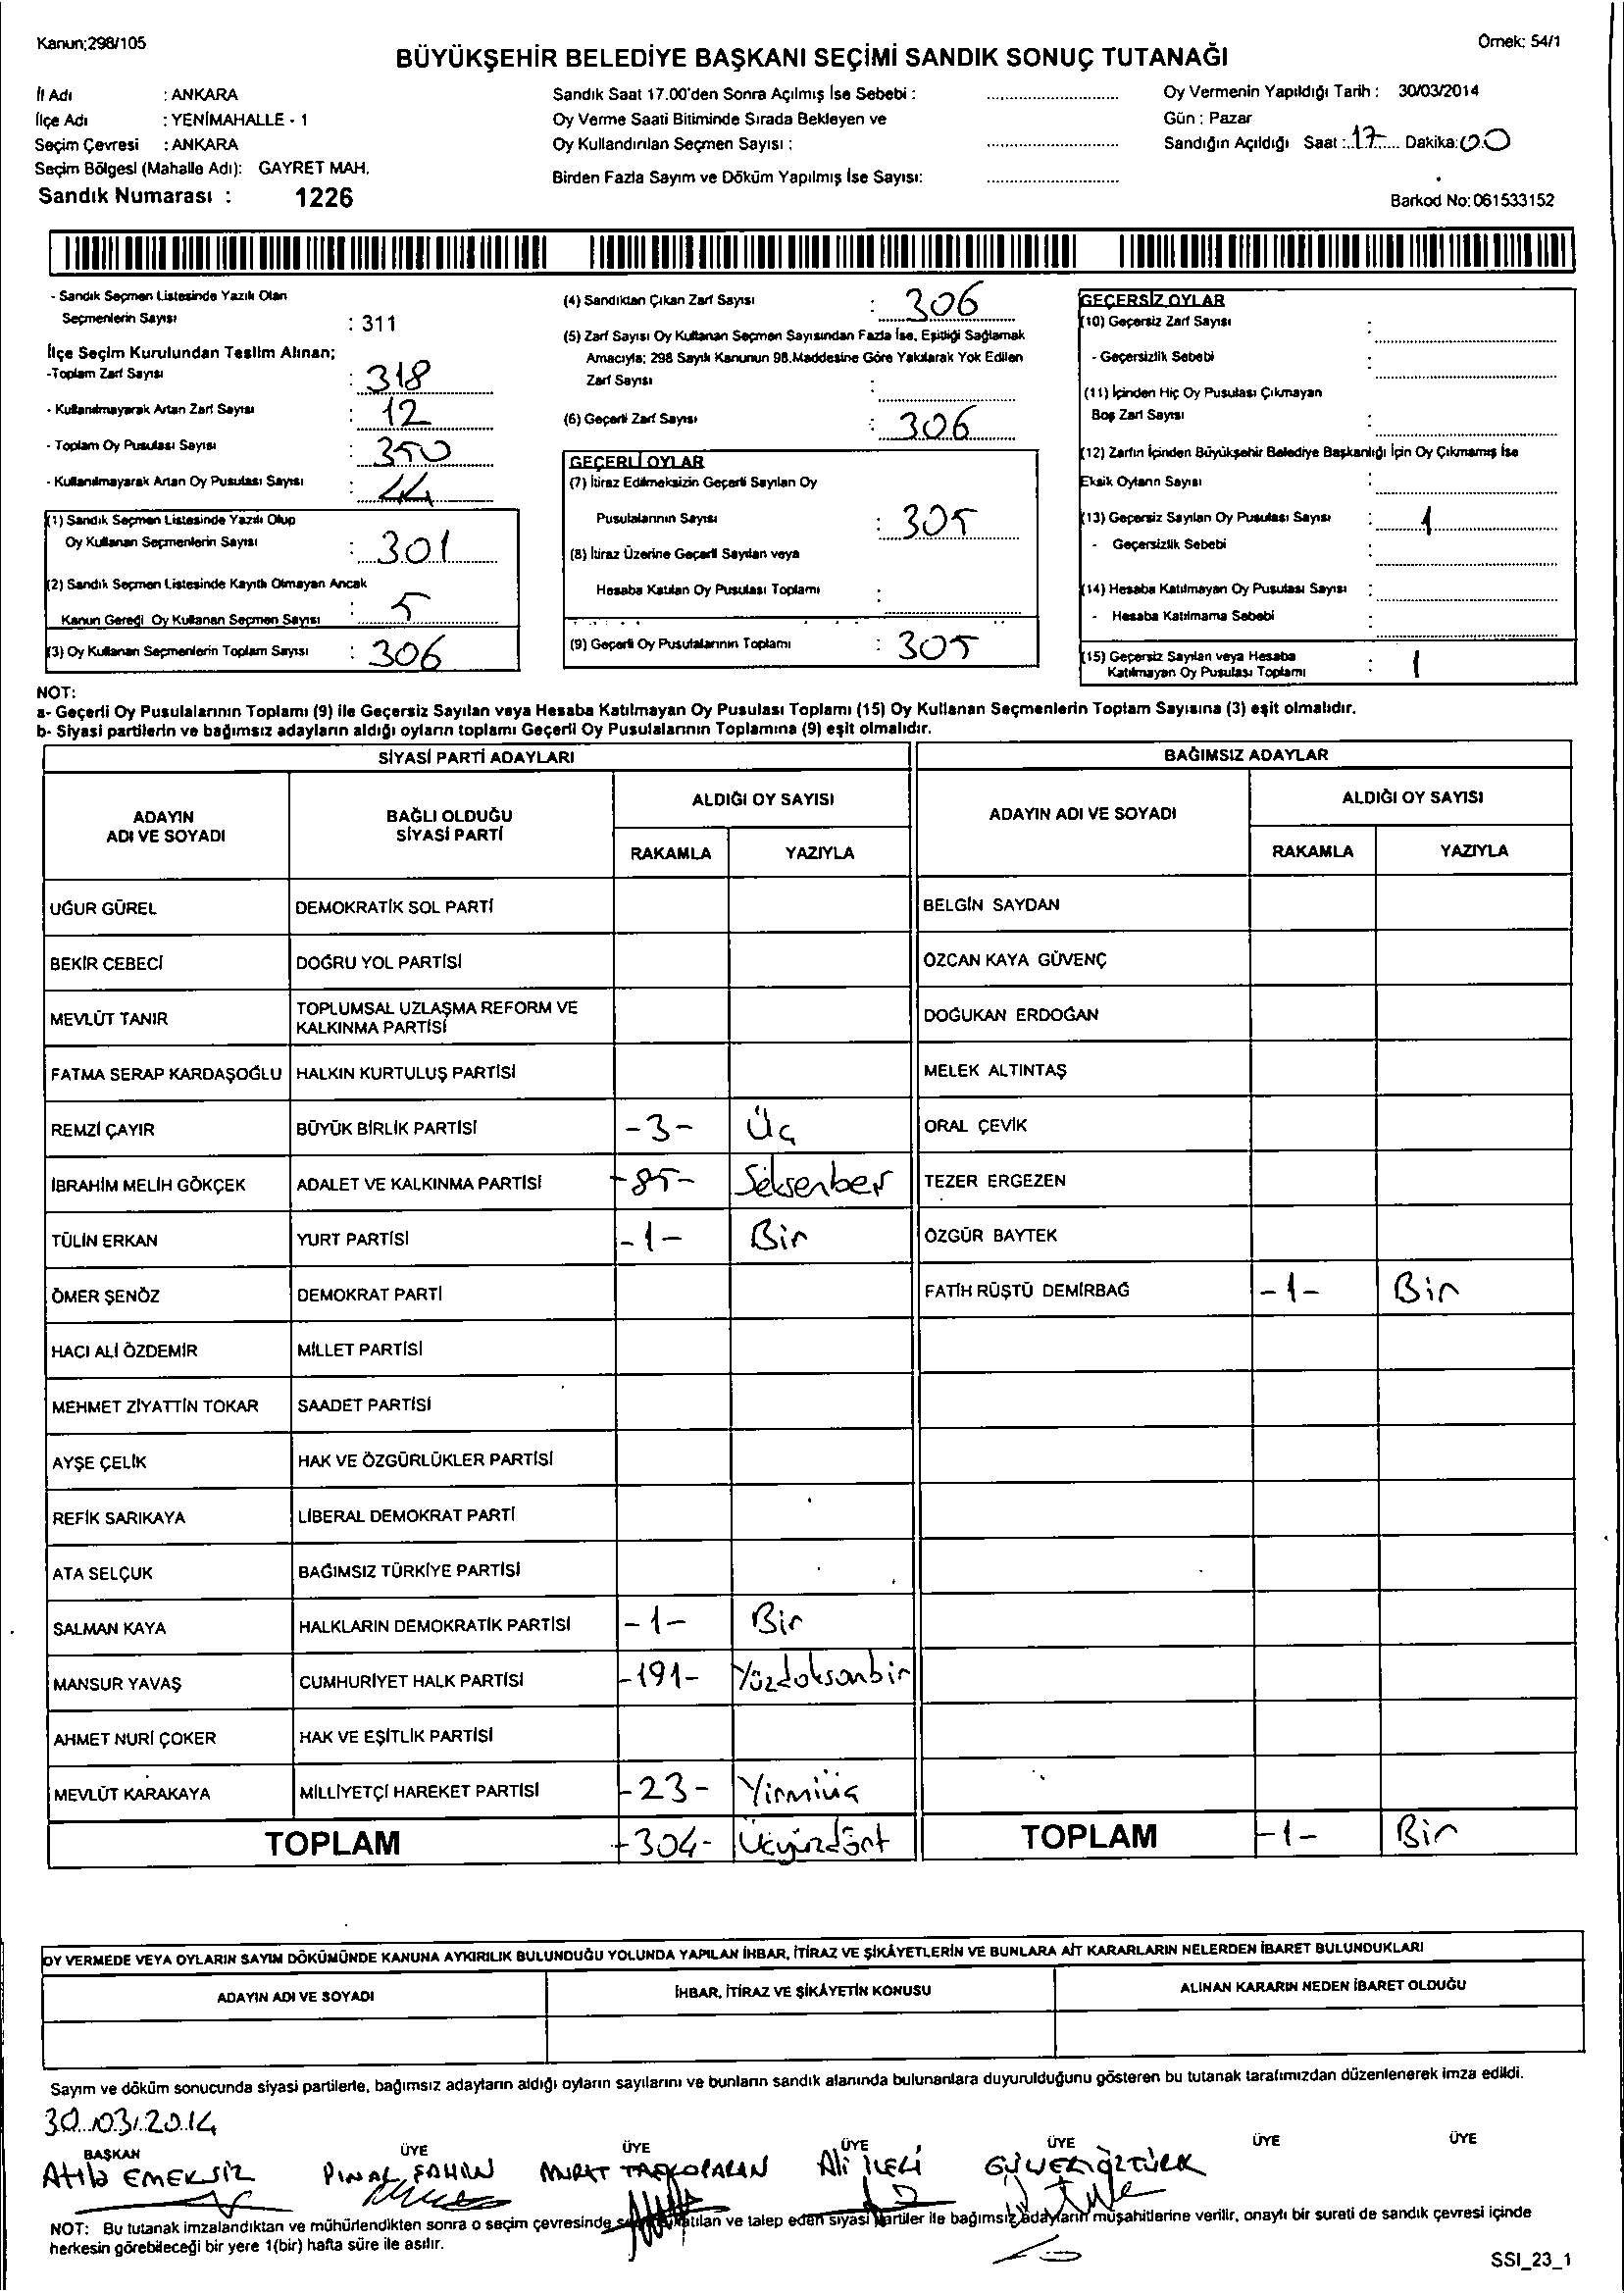 Kanun;298/105
Örnek: 54/1
BÜYÜKŞEHİR BELEDİYE BAŞKANI SEÇİMİ SANDIK SONUÇ TUTANAĞI
İl Adı : ANKARA
İlçe Adı : YENİMAHALLE - 1
Seçim Çevresi : ANKARA
Seçim Bölgesi (Mahalle Adı): GAYRET MAH.
Sandık Numarası : 1226
Sandık Saat 17.00'den Sonra Açılmış İse Sebebi :
Oy Verme Saati Bitiminde Sırada Bekleyen ve
Oy Kullandırılan Seçmen Sayısı :
Birden Fazla Sayım ve Döküm Yapılmış İse Sayısı:
Oy Vermenin Yapıldığı Tarih : 30/03/2014
Gün : Pazar
Sandığın Açıldığı Saat : 17 Dakika: 00
Barkod No: 061533152
- Sandık Seçmen Listesinde Yazılı Olan
Seçmenlerin Sayısı : 311
İlçe Seçim Kurulundan Teslim Alınan;
-Toplam Zarf Sayısı : 318
- Kullanılmayarak Artan Zarf Sayısı : 12
- Toplam Oy Pusulası Sayısı : 350
- Kullanılmayarak Artan Oy Pusulası Sayısı : 44
(1) Sandık Seçmen Listesinde Yazılı Olup
Oy Kullanan Seçmenlerin Sayısı : 301
(2) Sandık Seçmen Listesinde Kayıtlı Olmayan Ancak
Kanun Gereği Oy Kullanan Seçmen Sayısı : 5
(3) Oy Kullanan Seçmenlerin Toplam Sayısı : 306
(4) Sandıktan Çıkan Zarf Sayısı : 306
(5) Zarf Sayısı Oy Kullanan Seçmen Sayısından Fazla İse, Eşitliği Sağlamak
Amacıyla; 298 Sayılı Kanunun 98.Maddesine Göre Yakılarak Yok Edilen
Zarf Sayısı :
(6) Geçerli Zarf Sayısı : 306
GEÇERLİ OYLAR
(7) İtiraz Edilmeksizin Geçerli Sayılan Oy
Pusulalarının Sayısı : 305
(8) İtiraz Üzerine Geçerli Sayılan veya
Hesaba Katılan Oy Pusulası Toplamı :
(9) Geçerli Oy Pusulalarının Toplamı : 305
GEÇERSİZ OYLAR
(10) Geçersiz Zarf Sayısı :
- Geçersizlik Sebebi :
(11) İçinden Hiç Oy Pusulası Çıkmayan
Boş Zarf Sayısı :
(12) Zarfın İçinden Büyükşehir Belediye Başkanlığı İçin Oy Çıkmamış İse
Eksik Oyların Sayısı :
(13) Geçersiz Sayılan Oy Pusulası Sayısı : 1
- Geçersizlik Sebebi :
(14) Hesaba Katılmayan Oy Pusulası Sayısı :
- Hesaba Katılmama Sebebi :
(15) Geçersiz Sayılan veya Hesaba
Katılmayan Oy Pusulası Toplamı : 1
NOT:
a- Geçerli Oy Pusulalarının Toplamı (9) ile Geçersiz Sayılan veya Hesaba Katılmayan Oy Pusulası Toplamı (15) Oy Kullanan Seçmenlerin Toplam Sayısına (3) eşit olmalıdır.
b- Siyasi partilerin ve bağımsız adayların aldığı oyların toplamı Geçerli Oy Pusulalarının Toplamına (9) eşit olmalıdır.
SİYASİ PARTİ ADAYLARI
ADAYIN ADI VE SOYADI
BAĞLI OLDUĞU SİYASİ PARTİ
ALDIĞI OY SAYISI
RAKAMLA YAZIYLA
UĞUR GÜREL DEMOKRATİK SOL PARTİ
BEKİR CEBECİ DOĞRU YOL PARTİSİ
MEVLÜT TANIR TOPLUMSAL UZLAŞMA REFORM VE KALKINMA PARTİSİ
FATMA SERAP KARDAŞOĞLU HALKIN KURTULUŞ PARTİSİ
REMZİ ÇAYIR BÜYÜK BİRLİK PARTİSİ -3- Üç
İBRAHİM MELİH GÖKÇEK ADALET VE KALKINMA PARTİSİ -85- Seksenbeş
TÜLİN ERKAN YURT PARTİSİ -1- Bir
ÖMER ŞENÖZ DEMOKRAT PARTİ
HACI ALİ ÖZDEMİR MİLLET PARTİSİ
MEHMET ZİYATTİN TOKAR SAADET PARTİSİ
AYŞE ÇELİK HAK VE ÖZGÜRLÜKLER PARTİSİ
REFİK SARIKAYA LİBERAL DEMOKRAT PARTİ
ATA SELÇUK BAĞIMSIZ TÜRKİYE PARTİSİ
SALMAN KAYA HALKLARIN DEMOKRATİK PARTİSİ -1- Bir
MANSUR YAVAŞ CUMHURİYET HALK PARTİSİ -191- Yüzdoksanbir
AHMET NURİ ÇOKER HAK VE EŞİTLİK PARTİSİ
MEVLÜT KARAKAYA MİLLİYETÇİ HAREKET PARTİSİ -23- Yirmiüç
TOPLAM -304- Üçyüzdört
BAĞIMSIZ ADAYLAR
ADAYIN ADI VE SOYADI
ALDIĞI OY SAYISI
RAKAMLA YAZIYLA
BELGİN SAYDAN
ÖZCAN KAYA GÜVENÇ
DOĞUKAN ERDOĞAN
MELEK ALTINTAŞ
ORAL ÇEVİK
TEZER ERGEZEN
ÖZGÜR BAYTEK
FATİH RÜŞTÜ DEMİRBAĞ -1- Bir
TOPLAM -1- Bir
OY VERMEDE VEYA OYLARIN SAYIM DÖKÜMÜNDE KANUNA AYKIRILIK BULUNDUĞU YOLUNDA YAPILAN İHBAR, İTİRAZ VE ŞİKÂYETLERİN VE BUNLARA AİT KARARLARIN NELERDEN İBARET BULUNDUKLARI
ADAYIN ADI VE SOYADI
İHBAR, İTİRAZ VE ŞİKÂYETİN KONUSU
ALINAN KARARIN NEDEN İBARET OLDUĞU
Sayım ve döküm sonucunda siyasi partilerle, bağımsız adayların aldığı oyların sayılarını ve bunların sandık alanında bulunanlara duyurulduğunu gösteren bu tutanak tarafımızdan düzenlenerek imza edildi.
30.03.2014
BAŞKAN ÜYE ÜYE ÜYE ÜYE ÜYE ÜYE
Atila EMEKSİZ PINAR ŞAHİN MURAT TAŞKOPARAN Ali İLERİ GÜVEN ÖZTÜRK
NOT: Bu tutanak imzalandıktan ve mühürlendikten sonra o seçim çevresinde seçime katılan ve talep eden siyasi partiler ile bağımsız adayların müşahitlerine verilir, onaylı bir sureti de sandık çevresi içinde
herkesin görebileceği bir yere 1(bir) hafta süre ile asılır.
SSI_23_1